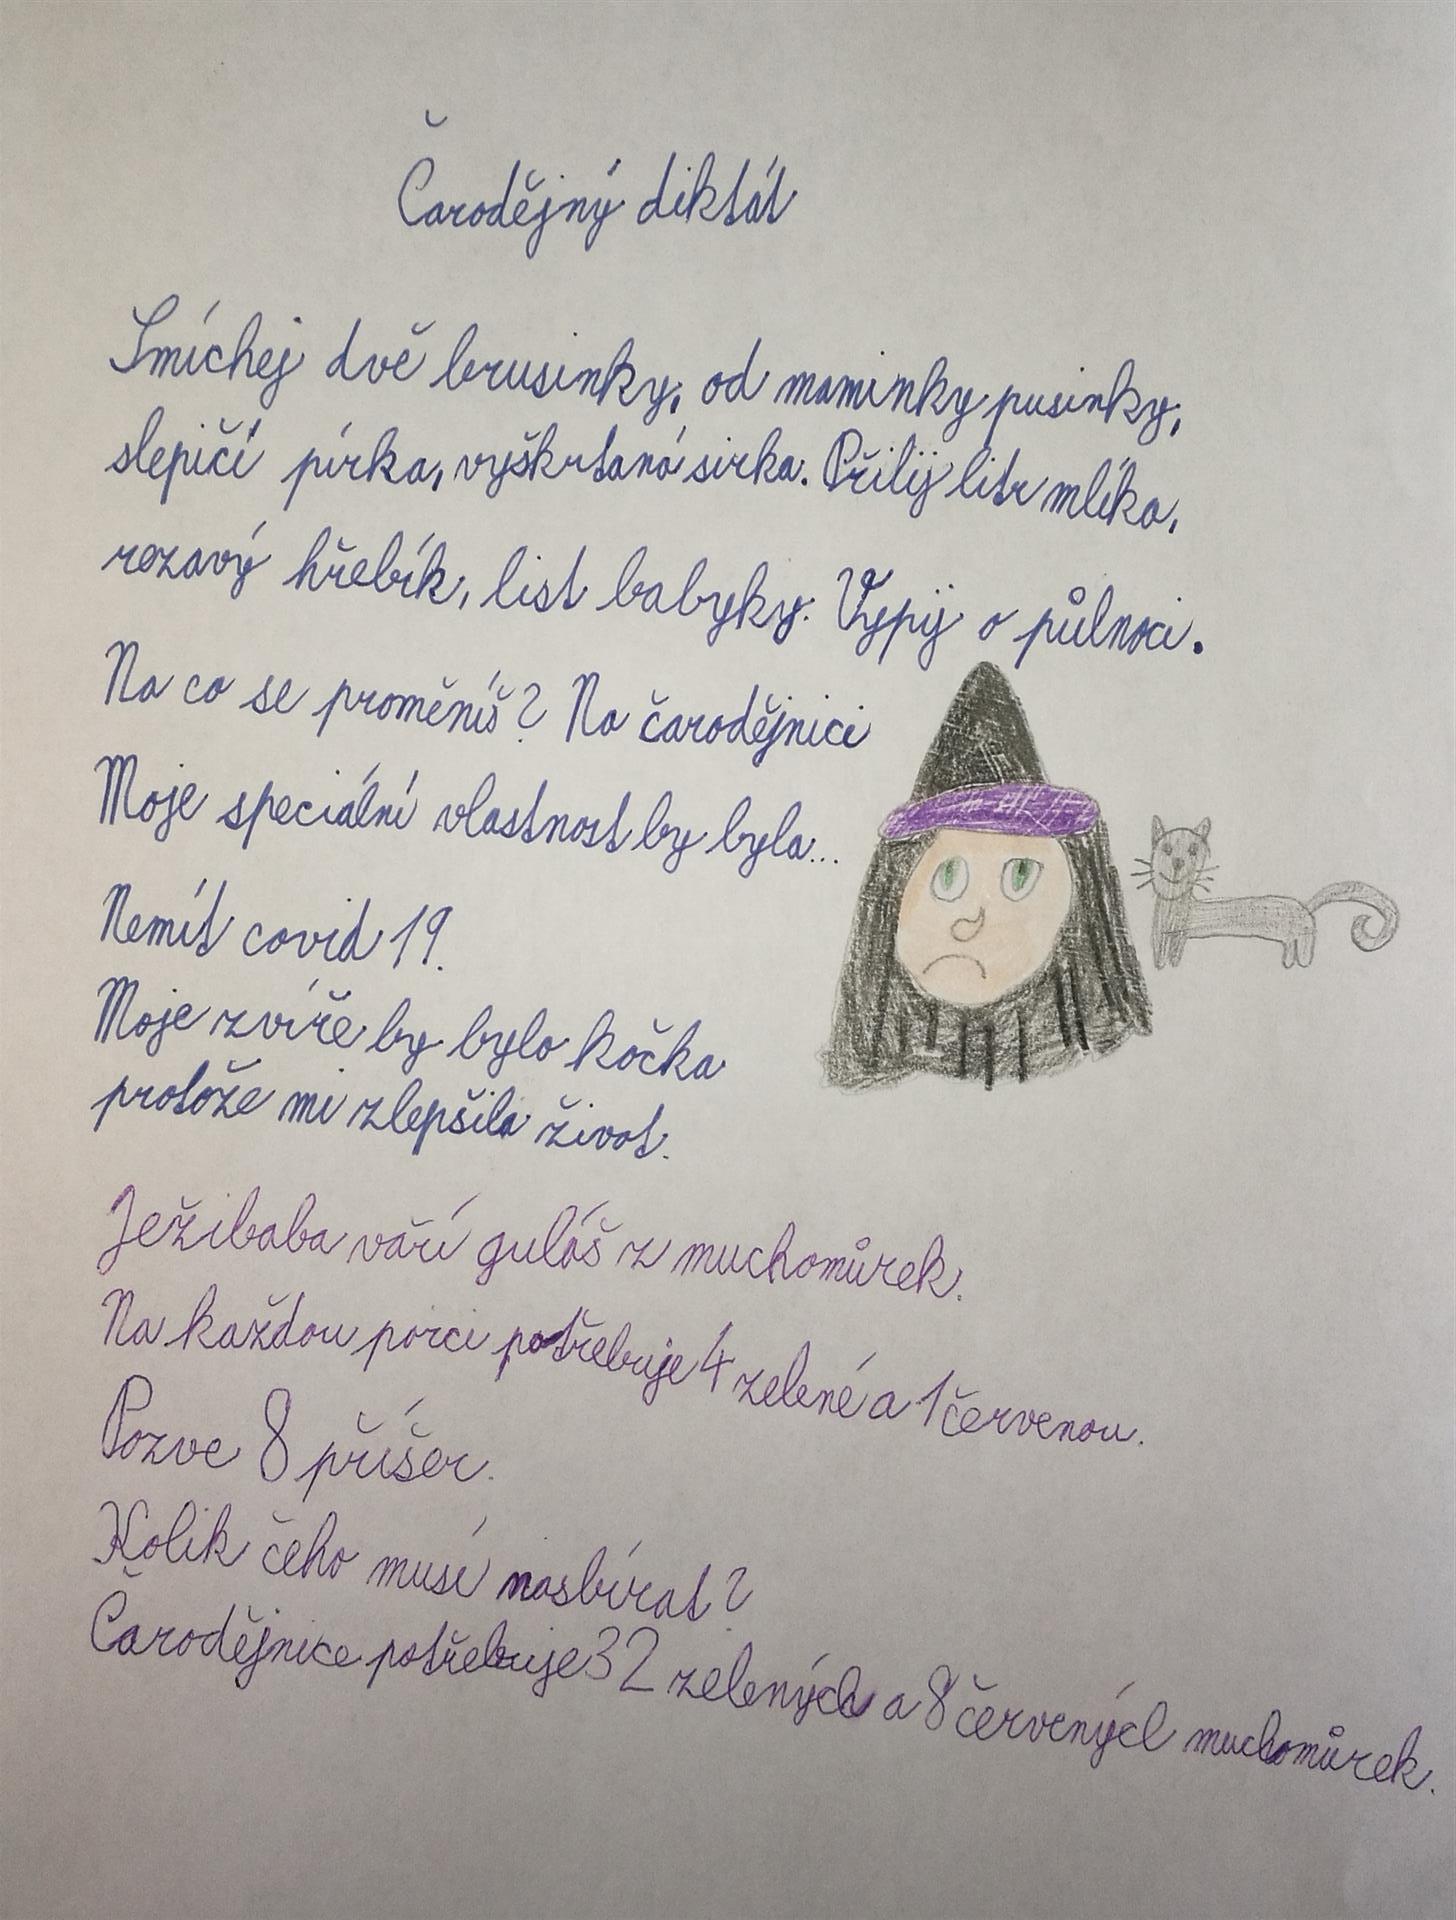 Čarodějný diktát
Smíchej dvě brusinky, od maminky pusinky,
slepičí pírka, vyškrtaná sirka. Přilij litr mlíka,
rezavý hřebík, list babyky. Vypij o půlnoci.
Na co se proměníš? Na čarodějnici
Moje speciální vlastnost by byla...
Nemít covid 19.
Moje zvíře by bylo kočka
protože mi zlepšila život.
Ježibaba vaří guláš z muchomůrek.
Na každou porci potřebuje 4 zelené a 1 červenou.
Pozve 8 příšer.
Kolik čeho musí nasbírat?
Čarodějnice potřebuje 32 zelených a 8 červených muchomůrek.